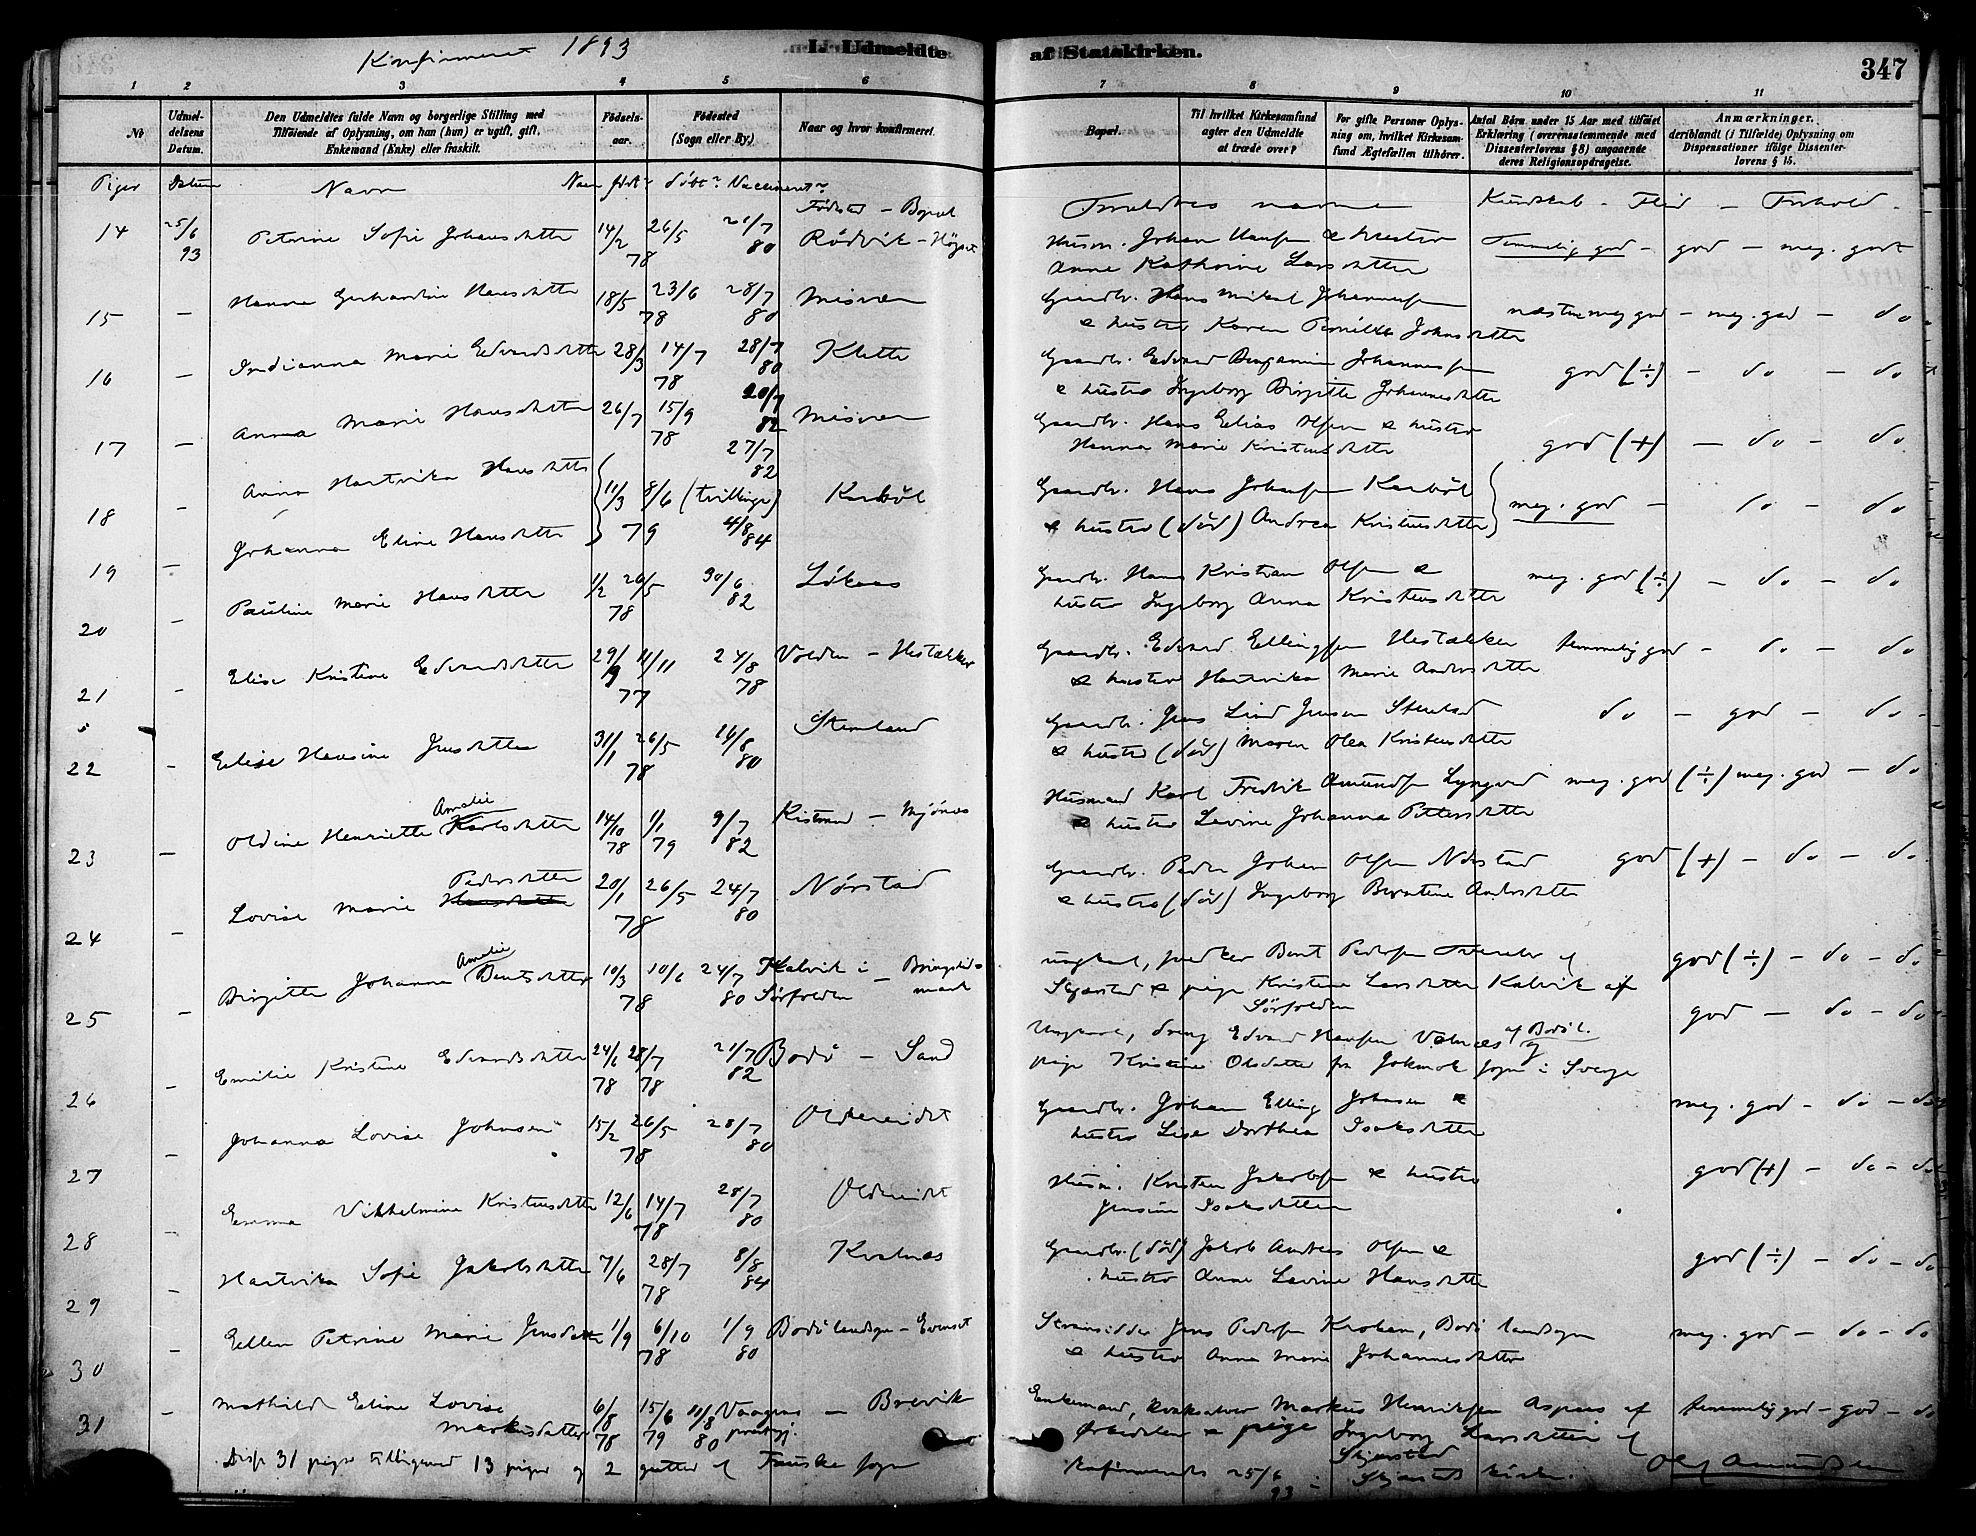 Konfirmeret 1893
L. Udmeldte af Statskirken.
347
1 2 3 4 5 6 7 8 9 10 11
No
Udmeldelsens Datum.
Den Udmeldtes fulde Navn og borgerlige Stilling med
Tilføiende af Oplysning, om han (hun) er ugift, gift,
Enkemand (Enke) eller fraskilt.
Fødselsaar.
Fødested
(Sogn eller By.)
Naar og hvor konfirmeret.
Bopæl.
Til hvilket Kirkesamfund
agter den Udmeldte
at træde over?
For gifte Personer Oplysning om, hvilket Kirkesamfund Ægtefællen tilhører.
Antal Børn under 15 Aar med tilføiet
Erklæring (overensstemmende med
Dissenterlovens § 8) angaaende
deres Religionsopdragelse.
Anmærkninger.
deriblandt (i Tilfælde) Oplysning om
Dispensationer ifølge Dissenterlovens § 15.
Piger Datum Navn Naar født? døbt? Vaccineret?
Fødested - Bopæl
Forældres navne
Kundskab - Flid - Forhold
14 25/6 93 Petrine Sofie Johansdatter 14/2 78 26/5 21/7 80 Rødvik - Høgset
Husm. Johan Hansen & hustro
Anne Kathrine Larsdatter
Temmelig god - god - meg. godt
15 - Hanna Gerhardine Hansdatter 18/5 23/6 78 28/7 80 Misvær
Gaardbr. Hans Mikal Johannesen
& hustro Karen Pernille Johnsdatter
næsten meg god - meg. god - do
16 - Indianna Marie Edvardsdatter 28/3 14/7 78 28/7 80 Klette
Gaardbr. Edvard Benjamin Johannessen
& hustro Ingeborg Birgitte Johannesdatter
god (÷) - do - do
17 - Anna Marie Hansdatter 26/7 15/9 78 20/7 82 Misvær
Gaardbr. Hans Elias Olsen & hustro
Hanna Marie Kristensdatter
god (+) - do - do
18 Anna Hartvika Hansdatter 11/3 8/6 (tvillinger) 79 27/7 82 Karbøl
Johanna Eline Hansdatter 4/8 84
Gaardbr. Hans Johansen Karbøl
& hustro (død) Andrea Kristensdatter
meg. god - do - do
19 - Pauline Marie Hansdatter 1/2 26/5 78 30/6 82 Løkaas
Gaardbr. Hans Kristian Olsen &
hustro Ingeborg Anna Kristensdatter
meg. god (÷) - do - do
20 -
Elise Kristine Edvardsdatter 29/9 11/11 77 24/8 78 Volden - Hestækker
Gaardbr. Edvard Ellingsen Hestækker
& hustro Hartvika Marie Andersdatter
temmelig god - do - do
21 -
Elise Hansine Jensdatter 31/1 26/5 78 16/8 80 Stemland
Gaardbr. Jens Lind Jensen
& hustro (død) Maren Olea Kristensdatter
do - god - do
22 -
Oldine Henriette Amalie Karlsdatter 14/10 78 1/1 79 9/7 82 - Mjønes
Husmand Karl Fredrik Amundsen
& hustro Lavine Johanna Pettersdatter
meg. god (÷) meg. god - do
23 -
Lovise Marie Pedersdatter 20/1 26/5 78 24/7 80 Nørstad
Gaardbr. Peder Johan Olsen Nørstad
& hustro (død) Ingeborg Berntine Andersdatter
god (+) - do - do
24 -
Birgitte Johanna Amalie Bentsdatter 10/3 10/6 78 24/7 80 Kalvik i Sørfolden
ungkarl, Bent Pedersen
Skjerstad & pige Kristine Larsdatter Kalvik af
Sørfolden
god (÷) - do - do
25 -
Emilie Kristine Edvardsdatter 24/6 78 28/7 78 21/7 82 Bodø - Sand
Ungkarl, dreng Edvard Hansen Valnæs af Bodø l.
pige Kristine Olsdatter fra Jokmok sogn i Sverge
god - do - do
26 -
Johanna Lovise Johnsen 15/2 26/5 78 28/7 80 Oldereidet
Gaardbr. Johan Elling Johnsen &
hustro Lise Dorthea Isaksdatter
meg. god - do - do
27 -
Emma Vilhelmine Kristensdatter 12/6 14/7 78 28/7 80 Oldereidet
Husm. Kristen Jakobsen & hustro
Jensine Isaksdatter
god (+) - do - do
28 -
Hartvika Sofie Jakobsdatter 7/6 28/7 78 8/8 84 Kvalnæs
Gaardbr. (død) Jakob Andreas Olsen &
hustro Anne Lavine Hansdatter
god (÷) - do - do
29 -
Ellen Petrine Marie Jensdatter 1/9 6/10 78 1/9 80 Bodø landsogn - Evenset
Stransidder Jens Pedersen Kroken, Bodø landsogn
& hustro Anna Marie Johannesdatter
meg. god - do - do
30 -
Mathilde Eline Lovise Markusdatter 6/8 78 15/6 79 11/8 80 Vaagens prestgj. - Brevik
31 -
Enkemand, Markus Henriksen af
& pige Ingeborg Larsdatter af
Skjerstad
temmelig god - god - do
Disse 31 piger tilligemed 13 piger og 2 gutter af Fauske sogn
konfirmeredes 25/6 93 i Skjerstad kirke.
Olaf Amundsen